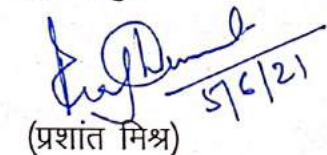 5/6/21
(प्रशांत मिश्र)